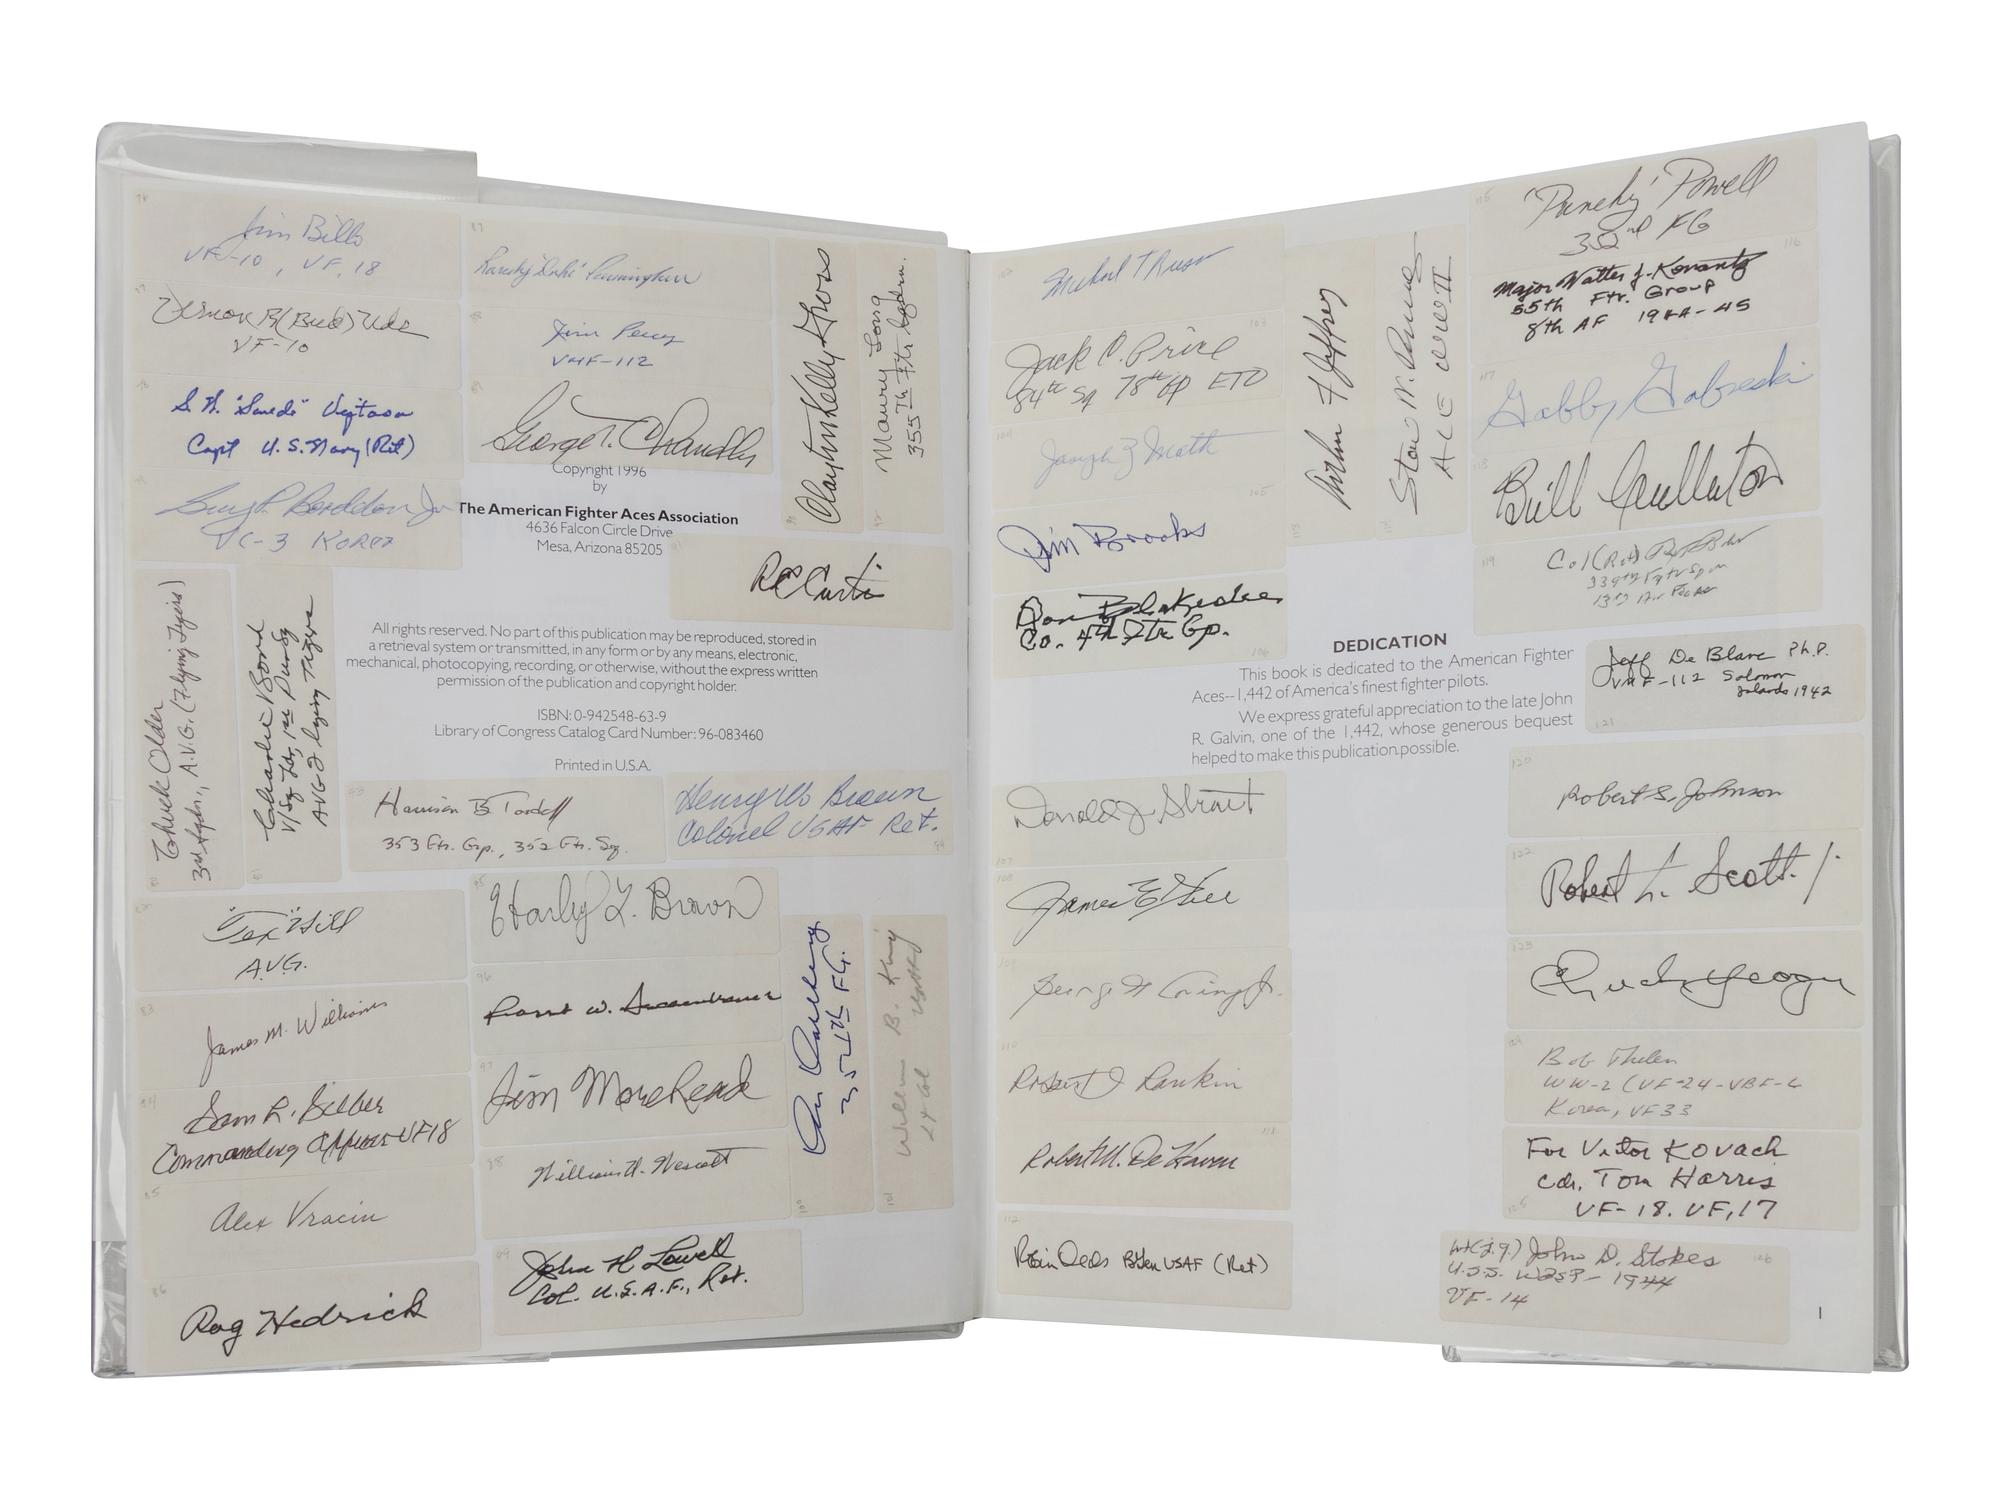 Jim Billo
VF-10, VF, 18
VF-10
S. W. "Swede" Vejtasa
Capt U.S. Navy (Ret)
Guy P. Bordelon Jr
VC-3 Korea
Randy "Duke" Cunningham
Jim Percy
VMF-112
George T. Chandler
Clayton Kelly Gross
Maury Long
355Th Ftr Sqdrn.
Copyright 1996
by
The American Fighter Aces Association
4636 Falcon Circle Drive
Mesa, Arizona 85205
RC Curtis
All rights reserved. No part of this publication may be reproduced, stored in
a retrieval system or transmitted, in any form or by any means, electronic,
mechanical, photocopying, recording, or otherwise, without the express written
permission of the publication and copyright holder.
ISBN: 0-942548-63-9
Library of Congress Catalog Card Number: 96-083460
Printed in U.S.A.
Chuck Older
3rd Sqdn., A.V.G. (Flying Tigers)
Charlie Bond
V/Sq Ldr, 1st Pur Sq
AVG Flying Tigers
Harrison B Tordoff
353 Ftr. Grp., 352 Ftr. Sq.
Henry W Brown
Colonel USAF Ret.
"Tex" Hill
A.V.G.
James M. Williams
Sam L. Silber
Commanding Officer VF18
Alex Vraciu
Rog Hedrick
Harley L. Brown
Jim Morehead
William H. Wescott
John H Lowell
Col. U.S.A.F., Ret.
354th FG.
William B. King
Lt Col
Michael T Russo
Jack C. Price
84th Sq 78th Gp ETO
Joseph Z Math
Jim Brooks
Don Blakeslee
Co. 4th Ftr Gp.
Arthur F Jeffrey
ACE WW II
"Punchy" Powell
352nd FG
Major Walter J. Konantz
55th Ftr. Group
8th AF 1944-45
Gabby Gabreski
Bill Cullerton
339th Ftr Sqn
13th Air Force
DEDICATION
This book is dedicated to the American Fighter
Aces--1,442 of America's finest fighter pilots.
We express grateful appreciation to the late John
R. Galvin, one of the 1,442, whose generous bequest
helped to make this publication possible.
Jeff De Blanc Ph.D.
VMF-112 Solomon
Islands 1942
Donald J. Strait
James E Hill
Robert J Rankin
Robert M. DeHaven
Robin Olds BGen USAF (Ret)
Robert S. Johnson
Robert L. Scott Jr
Chuck Yeager
Bob Thelen
WW-2 (VF-24-VBF-6
Korea, VF33
For Victor Kovach
Cdr. Tom Harris
VF-18. VF,17
Lt (j.g.) John D. Stokes
U.S.S. Wasp - 1944
VF-14
1